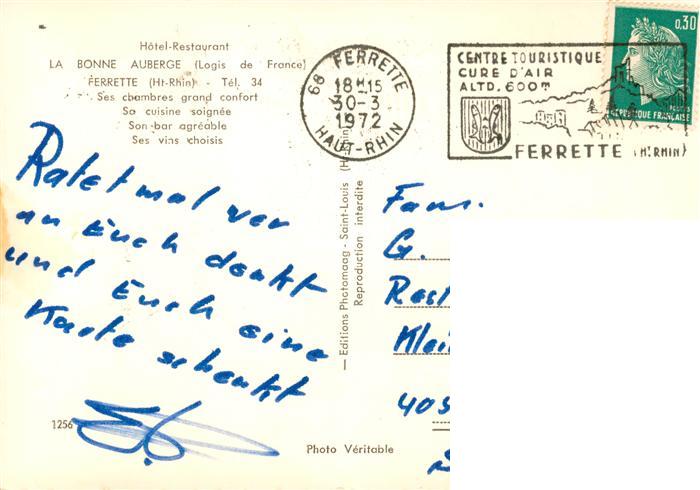 Hôtel-Restaurant
LA BONNE AUBERGE (Logis de France)
FERRETTE (Ht-Rhin) - Tél. 34
Ses chambres grand confort
Sa cuisine soignée
Son bar agréable
Ses vins choisis
68 FERRETTE
18H15
30-3
1972
HAUT-RHIN
CENTRE TOURISTIQUE
CURE D'AIR
ALTD. 600M
FERRETTE (HT RHIN)
0,30
REPUBLIQUE FRANÇAISE
Ratet mal wer
an Euch denkt
und Euch eine
Karte schenkt
Editions Photomaag - Saint-Louis (H
Reproduction interdite
Fam.
G.
Rest
Klei
405
1256
Photo Véritable